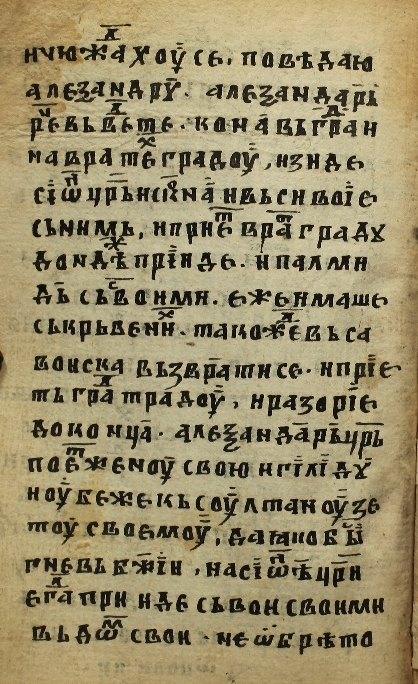 и чюжⷣахоу се. повѣдаю
алеѯандрꙋ. алеѯандарь
реⷱ҇ вь вѣⷣте. кон а вь граⷣ н
на врате градоу, изиде
сїѡⷩ҇ црь и с нꙗ и вьси воїе
сь нимь, и при неⷨ врата градꙋ
дондѣⷤ прїиде. и палми
дь сь своⷨ ими. еже имаше
ськрьвенниⷯ. такожеⷣ вь са
воиска възврати се. и прїе
ть граⷣ традоу, и разорїе
до конца. алеѯандарь црь
поеⷮ же ноу свою и гїлїдꙋ
ноу бежекь соултаноу зе
тоу своемоу, да ꙗко бы
гневь бжїи, на сїѡⷩ҇ѣ цри
егⷣа прииде сь вои своими
вь дѡⷨ свои. не ѡбрѣто